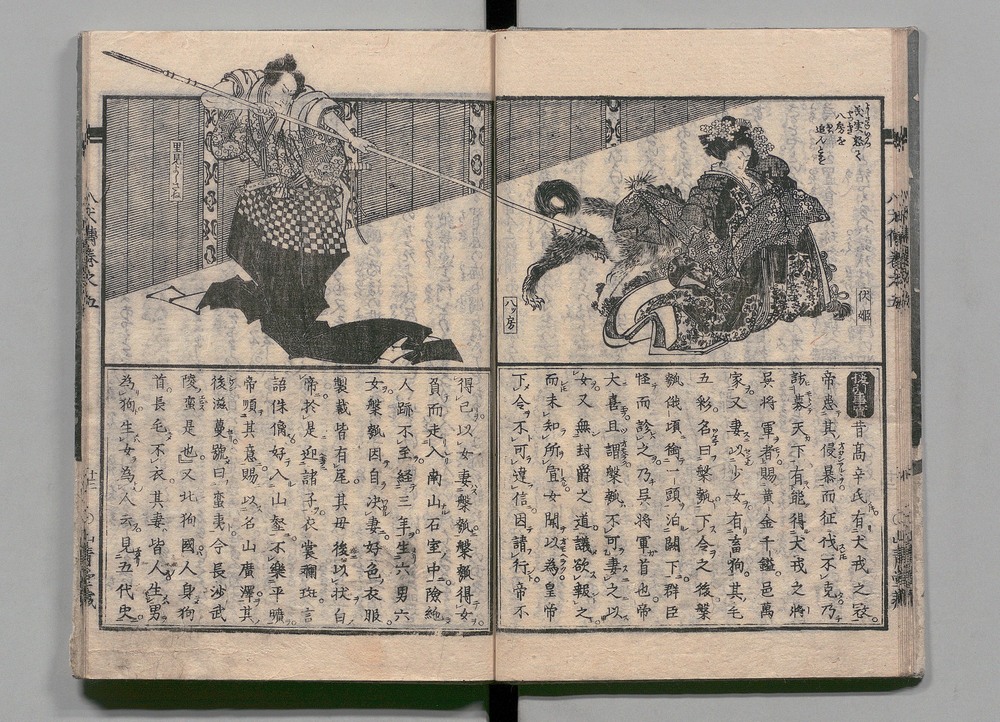 八房を
伏姫
八ッ房
里見よしさね
昔高辛氏有犬戎之寇
帝患其侵暴而征伐不克乃
訪募天下有能得犬戎之將
呉將軍者賜黄金千鎰邑萬
家又妻以少女有畜狗其毛
五彩名曰槃瓠下令之後槃
瓠俄頃銜一頭泊闕下群臣
怪而診之乃呉將軍首也帝
大喜且謂槃瓠不可妻之以
女又無封爵之道議欲報之
而未知所宜女聞以為皇帝
下令不可違信因請行帝不
得已以女妻槃瓠槃瓠得女
負而走入南山石室中險絶
人跡不至經三年生六男六
女槃瓠因自決妻好色衣服
製裁皆有尾其母後以状白
帝於是迎諸子衣裳襴斑言
語侏儷好入山壑不樂平曠
帝順其意賜以名山廣澤其
後滋蔓號曰蠻夷今長沙武
陵蠻是也又北狗國人身狗
首長毛不衣其妻皆人生男
為狗生女為人云見五代史
八犬傳巻之五